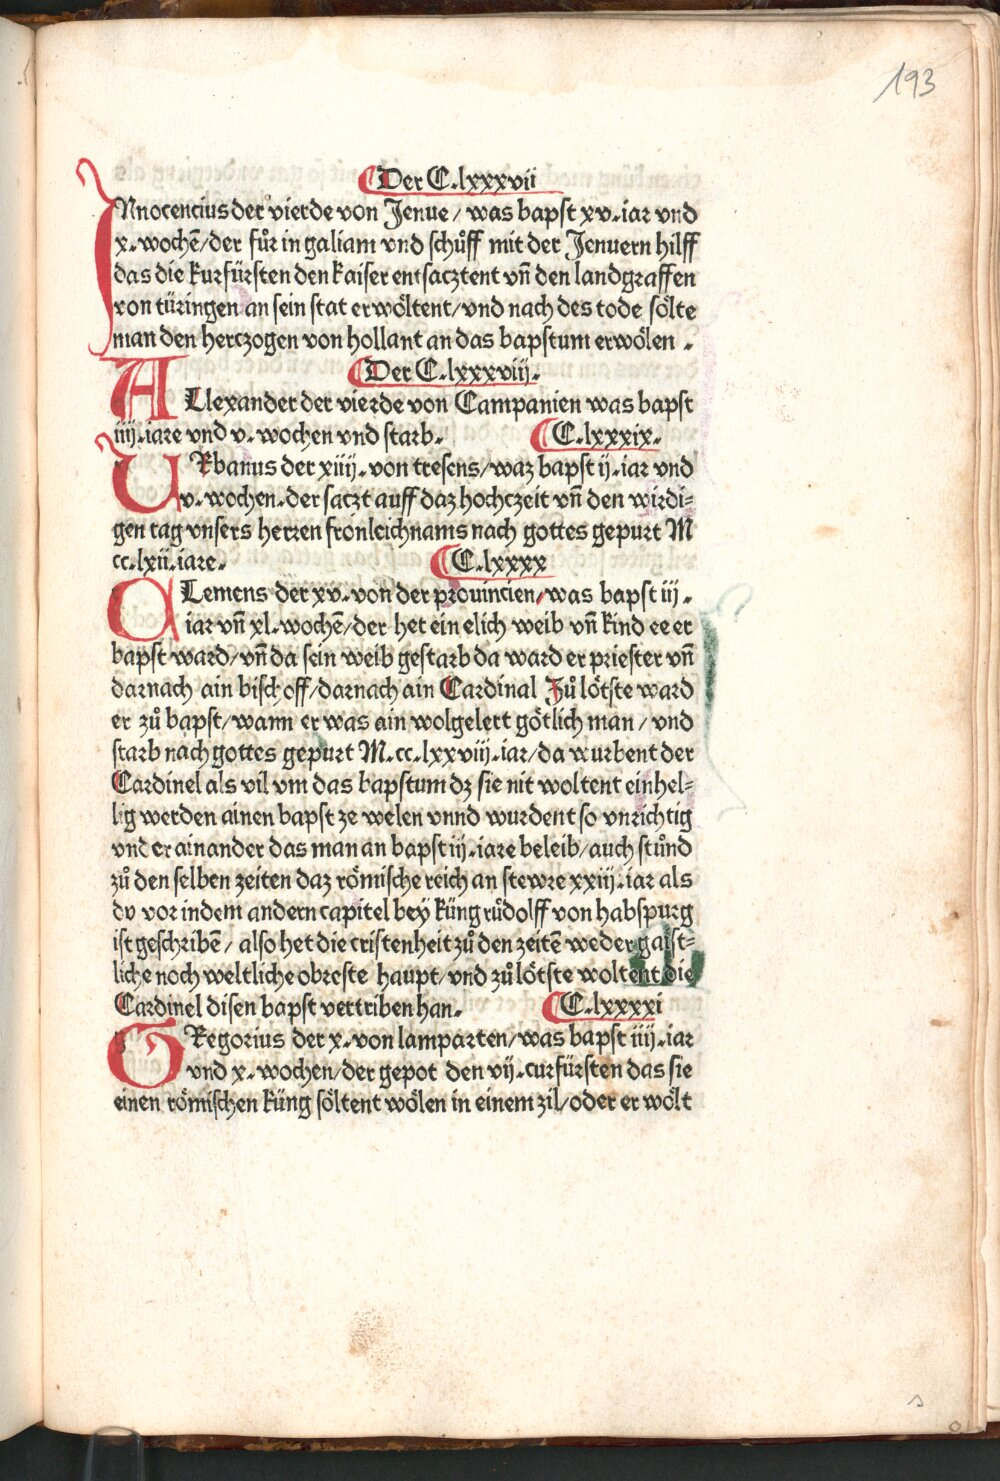 193
Der C.lxxxvii
INnocencius der vierde von Jenue / was bapst xv.iar vnd
x.wochē/der fůr in galiam vnd schůff mit der Jenuern hilff
das die kurfürsten den kaiser entsacztent vn̄ den landgraffen
von türingen an sein stat erwöltent/vnd nach des tode sölte
man den herczogen von hollant an das bapstum erwölen .
Der C.lxxxviij.
ALlexander der vierde von Campanien was bapst
iiij.iare vnd v.wochen vnd starb.
C.lxxxix.
VRbanus der xiiij.von tresens/waz bapst ij.iar vnd
v.wochen.der saczt auff daz hochczeit vn̄ den wirdi=
gen tag vnsers herren fronleichnams nach gottes gepurt M
cc.lxii.iare.
C.lxxxx
CLemens der xv.von der prouincien/was bapst iij.
iar vn̄ xl.wochē/der het ein elich weib vn̄ kind ee er
bapst ward/vn̄ da sein weib gestarb da ward er priester vn̄
darnach ain bischoff/darnach ain Cardinal Zů lötste ward
er zů bapst/wann er was ain wolgelert götlich man / vnd
starb nach gottes gepurt M.cc.lxxviij.iar/da wurbent der
Cardinel als vil vm das bapstum dz sie nit woltent einhel=
lig werden ainen bapst ze welen vnnd wurdent so vnrichtig
vnder ainander das man an bapst iij.iare beleib/auch stůnd
zů den selben zeiten daz römische reich an stewre xxiij.iar als
dv vor in dem andern capitel bey küng růdolff von habspurg
ist geschribē/ also het die cristenheit zů den zeitē weder gaist=
liche noch weltliche obreste haupt/vnd zů lötste woltent die
Cardinel disen bapst vertriben han.
C.lxxxxi
GRegorius der x.von lamparten/was bapst iiij.iar
vnd x.wochen/der gepot den vij.curfürsten das sie
einen römischen küng söltent wölen in einem zil/oder er wölt